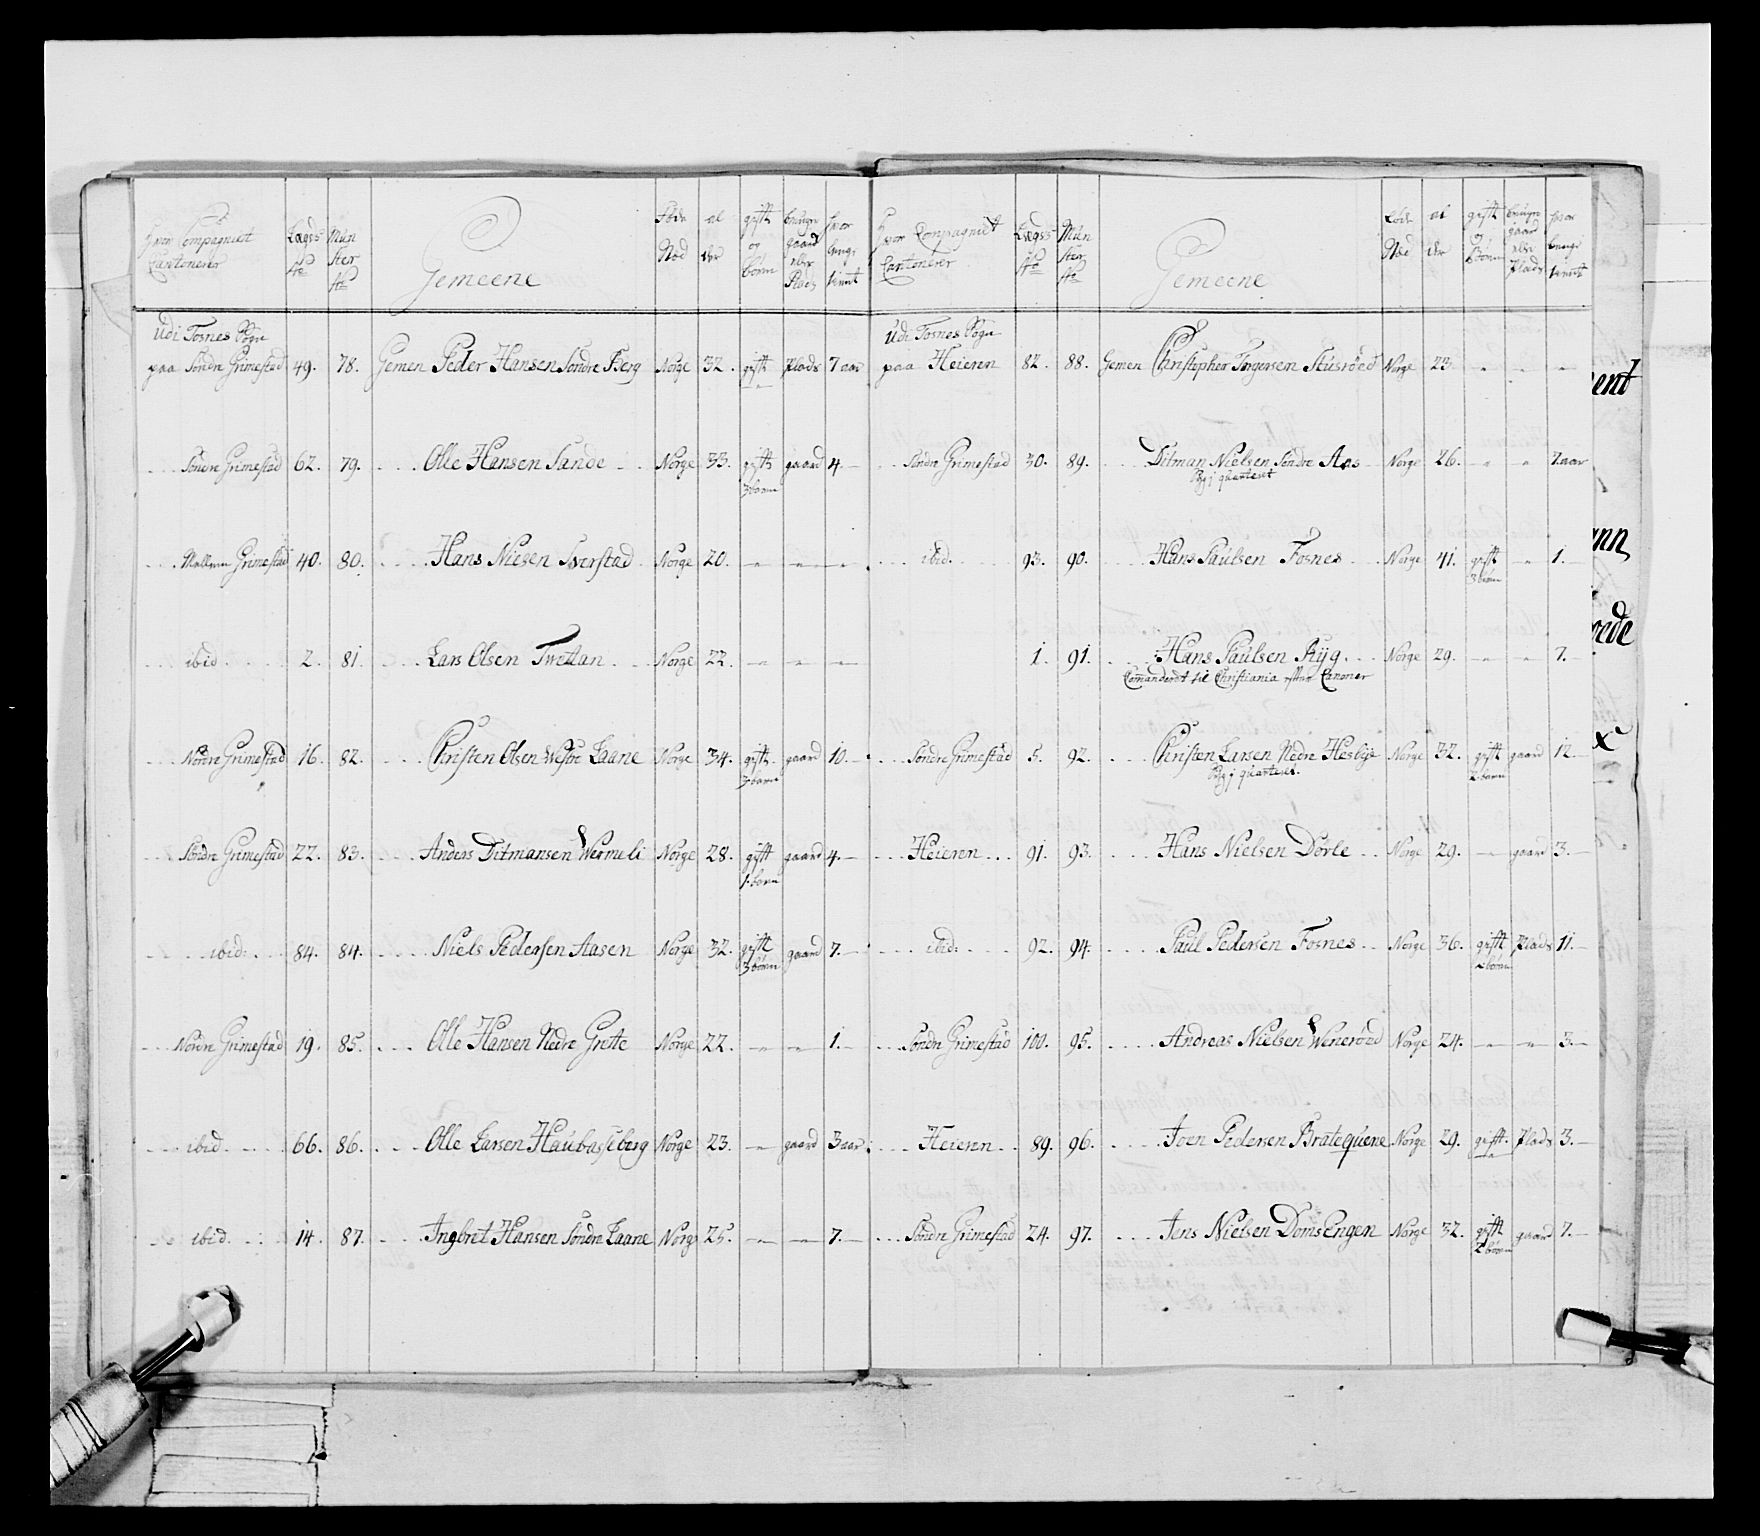 Hvor Compagniet Cantonerer | Lægds No | Mun ster No | Gemeene | Føde Stæd | al der | gifft og børn | bruger gaard eller Plads | hvor lenge tient
Udi Fosnes Sogn
paa Søndre Grimestad 49. 78. Gemen Peder Hansen Søndre Berg Norge 32. gifft Plads 7 aar
Søndre Grimestad 62. 79. Olle Hansen Sande Norge 33. gifft gaard 4.
3 børn
Mellem Grimestad 40. 80. Hans Nielsen Norge 20.
ibid. 2. 81. Lars Olsen Twettan Norge 22.
Nordre Grimestad 16. 82. Christen Olsen Westre Laane Norge 34. gifft gaard 10.
3 børn
Søndre Grimestad 22. 83. Anders Ditmansen Wermeli Norge 28. gifft gaard 4.
1. børn
ibid: 84. 84. Niels Pedersen Aasen Norge 32. gifft gaard 7.
3 børn
Nordre Grimestad 19. 85. Olle Hansen Nedre Grette Norge 22. 1.
ibid. 66. 86. Olle Larsen Haubasseberg Norge 23. gaard 3 aar
ibid. 14. 87. Ingbret Hansen Søndre Laane Norge 25. 7.
Hvor Compagniet Cantonerer | Lægds No | Mun ster No | Gemeene | Føde Stæd | al der | gifft og Børn | bruger gaar eller Plads | hvor lenge tient
Udi Fosnes Sogn
paa Heieren 82. 88. Gemen Christopher Torgersen Norge 23.
Søndre Grimestad 30. 89. Ditman Nielsen Søndre Aas Norge 26. 7. aar
Syg i quarteret
ibid. 93. 90. Hans Paulsen Fosnes Norge 41. gifft 1.
3 børn
1. 91. Hans Paulsen Ryg Norge 29. 7.
Comanderet til Christiania efter Canoner
Søndre Grimestad 5. 92. Christen Larsen Nedre Hesbye Norge 32. gifft gaard 12.
Syg i quarteret. 2 børn
Heieren 91. 93. Hans Nielsen Dørle Norge 29. gaard 3.
ibid: 92. 94. Paul Pedersen Fosnes Norge 36. gifft Plads 11.
børn
Søndre Grimestad 100. 95. Andreas Nielsen Wenerød Norge 24. 3.
Heieren 89. 96. Joen Pedersen Bratequene Norge 29. gifft Plads 3.
Søndre Grimestad 24. 97. Jens Nielsen Doms Engen Norge 32. gifft gaard 7.
2 børn